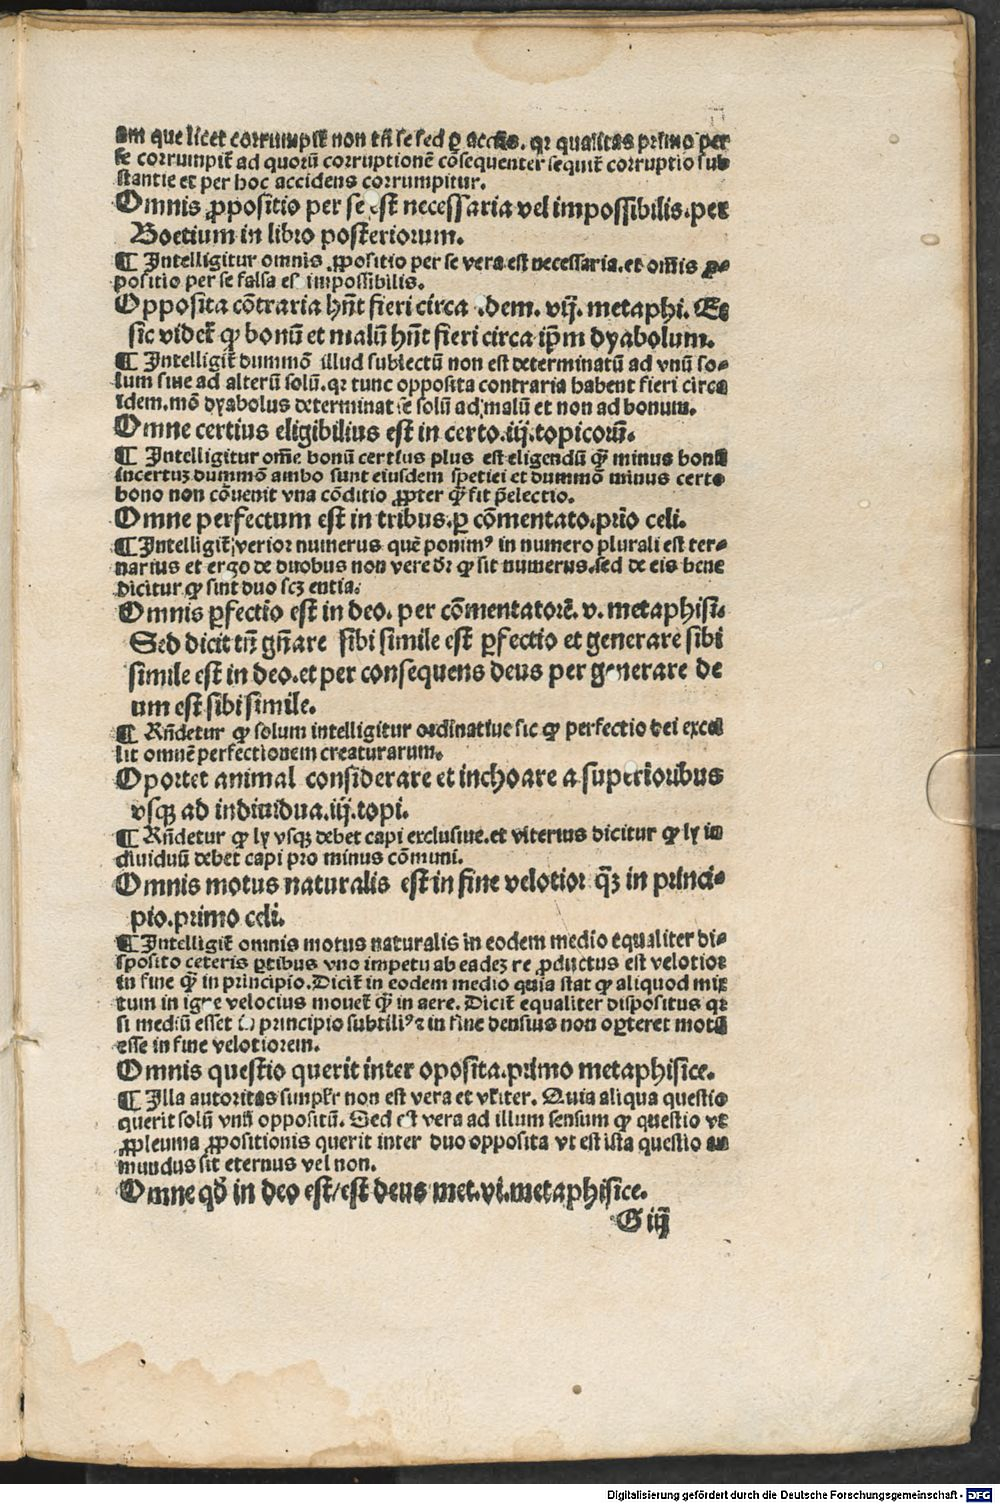 am que licet corrumpit᷑ non tn̄ se sed ꝑ accn̄s. qꝛ qualitas primo per
se corrumpit᷑ ad quorū corruptionē cōsequenter sequit᷑ corruptio sub
stantie et per hoc accidens corrumpitur.
Omnis ꝓpositio per se est necessaria vel impossibilis.per
Boetium in libro posteriorum.
¶ Intelligitur omnis ꝓpositio per se vera est necessaria.et om̄is ꝓ-
positio per se falsa est impossibilis.
Opposita cōtraria hn̄t fieri circa idem. vij. metaphi. Et
sic videt᷑ ꝙ bonū et malū hn̄t fieri circa ip̄m dyabolum.
¶ Intelligit᷑ dummō illud subiectū non est determinatū ad vnū so-
lum siue ad alterū solū.qꝛ tunc opposita contraria habent fieri circa
idem.mō dyabolus determinat se solū ad malū et non ad bonum.
Omne certius eligibilius est in certo.iij.topicorū.
¶ Intelligitur om̄e bonū certius plus est eligendū ꝙ̄ minus bonū
incertuꝫ dummō ambo sunt eiusdem spetiei et dummō minus certo
bono non cōuenit vna cōditio ꝓpter ꝙ̄ fit p̄electio.
Omne perfectum est in tribus.ꝑ cōmentato.prīo celi.
¶ Intelligit᷑ verior numerus quē ponimꝰ in numero plurali est ter-
narius et ergo de duobus non vere dr̄ ꝙ sit numerus.sed de eis bene
dicitur ꝙ sint duo scꝫ entia.
Omnis ꝑfectio est in deo. per cōmentatorē. v. metaphisi.
Sed dicit tn̄ gn̄are sibi simile est ꝑfectio et generare sibi
simile est in deo.et per consequens deus per generare de
um est sibi simile.
¶ Rn̄detur ꝙ solum intelligitur ordinatiue sic ꝙ perfectio dei excel
lit omnē perfectionem creaturarum.
Oportet animal considerare et inchoare a superioribus
vsqꝫ ad indiuidua.iij.topi.
¶ Rn̄detur ꝙ ly vsqꝫ debet capi exclusiue.et vlterius dicitur ꝙ ly in
diuiduū debet capi pro minus cōmuni.
Omnis motus naturalis est in fine velotior qꝫ̄ in princi-
pio.primo celi.
¶ Intelligit᷑ omnis motus naturalis in eodem medio equaliter di-
sposito ceteris ꝑtibus vno impetu ab eadeꝫ re ꝓductus est velotior
in fine ꝙ̄ in principio.Dicit᷑ in eodem medio quia stat ꝙ aliquod mix
tum in igne velocius mouet᷑ ꝙ̄ in aere. Dicit᷑ equaliter dispositus qꝛ
si mediū esset in principio subtiliꝰ ⁊ in fine densius non oꝑteret motū
esse in fine velotiorem.
Omnis questio querit inter oposita.primo metaphisice.
¶ Illa autoritas simpl᷑r non est vera et vl᷑iter. Quia aliqua questio
querit solū vnū oppositū. Sed est vera ad illum sensum ꝙ questio vt
ꝓpleuma ꝓpositionis querit inter duo opposita vt est ista questio an
mundus sit eternus vel non.
Omne qd̄ in deo est/est deus met.vi.metaphisice.
G iij
Digitalisierung gefördert durch die Deutsche Forschungsgemeinschaft - DFG